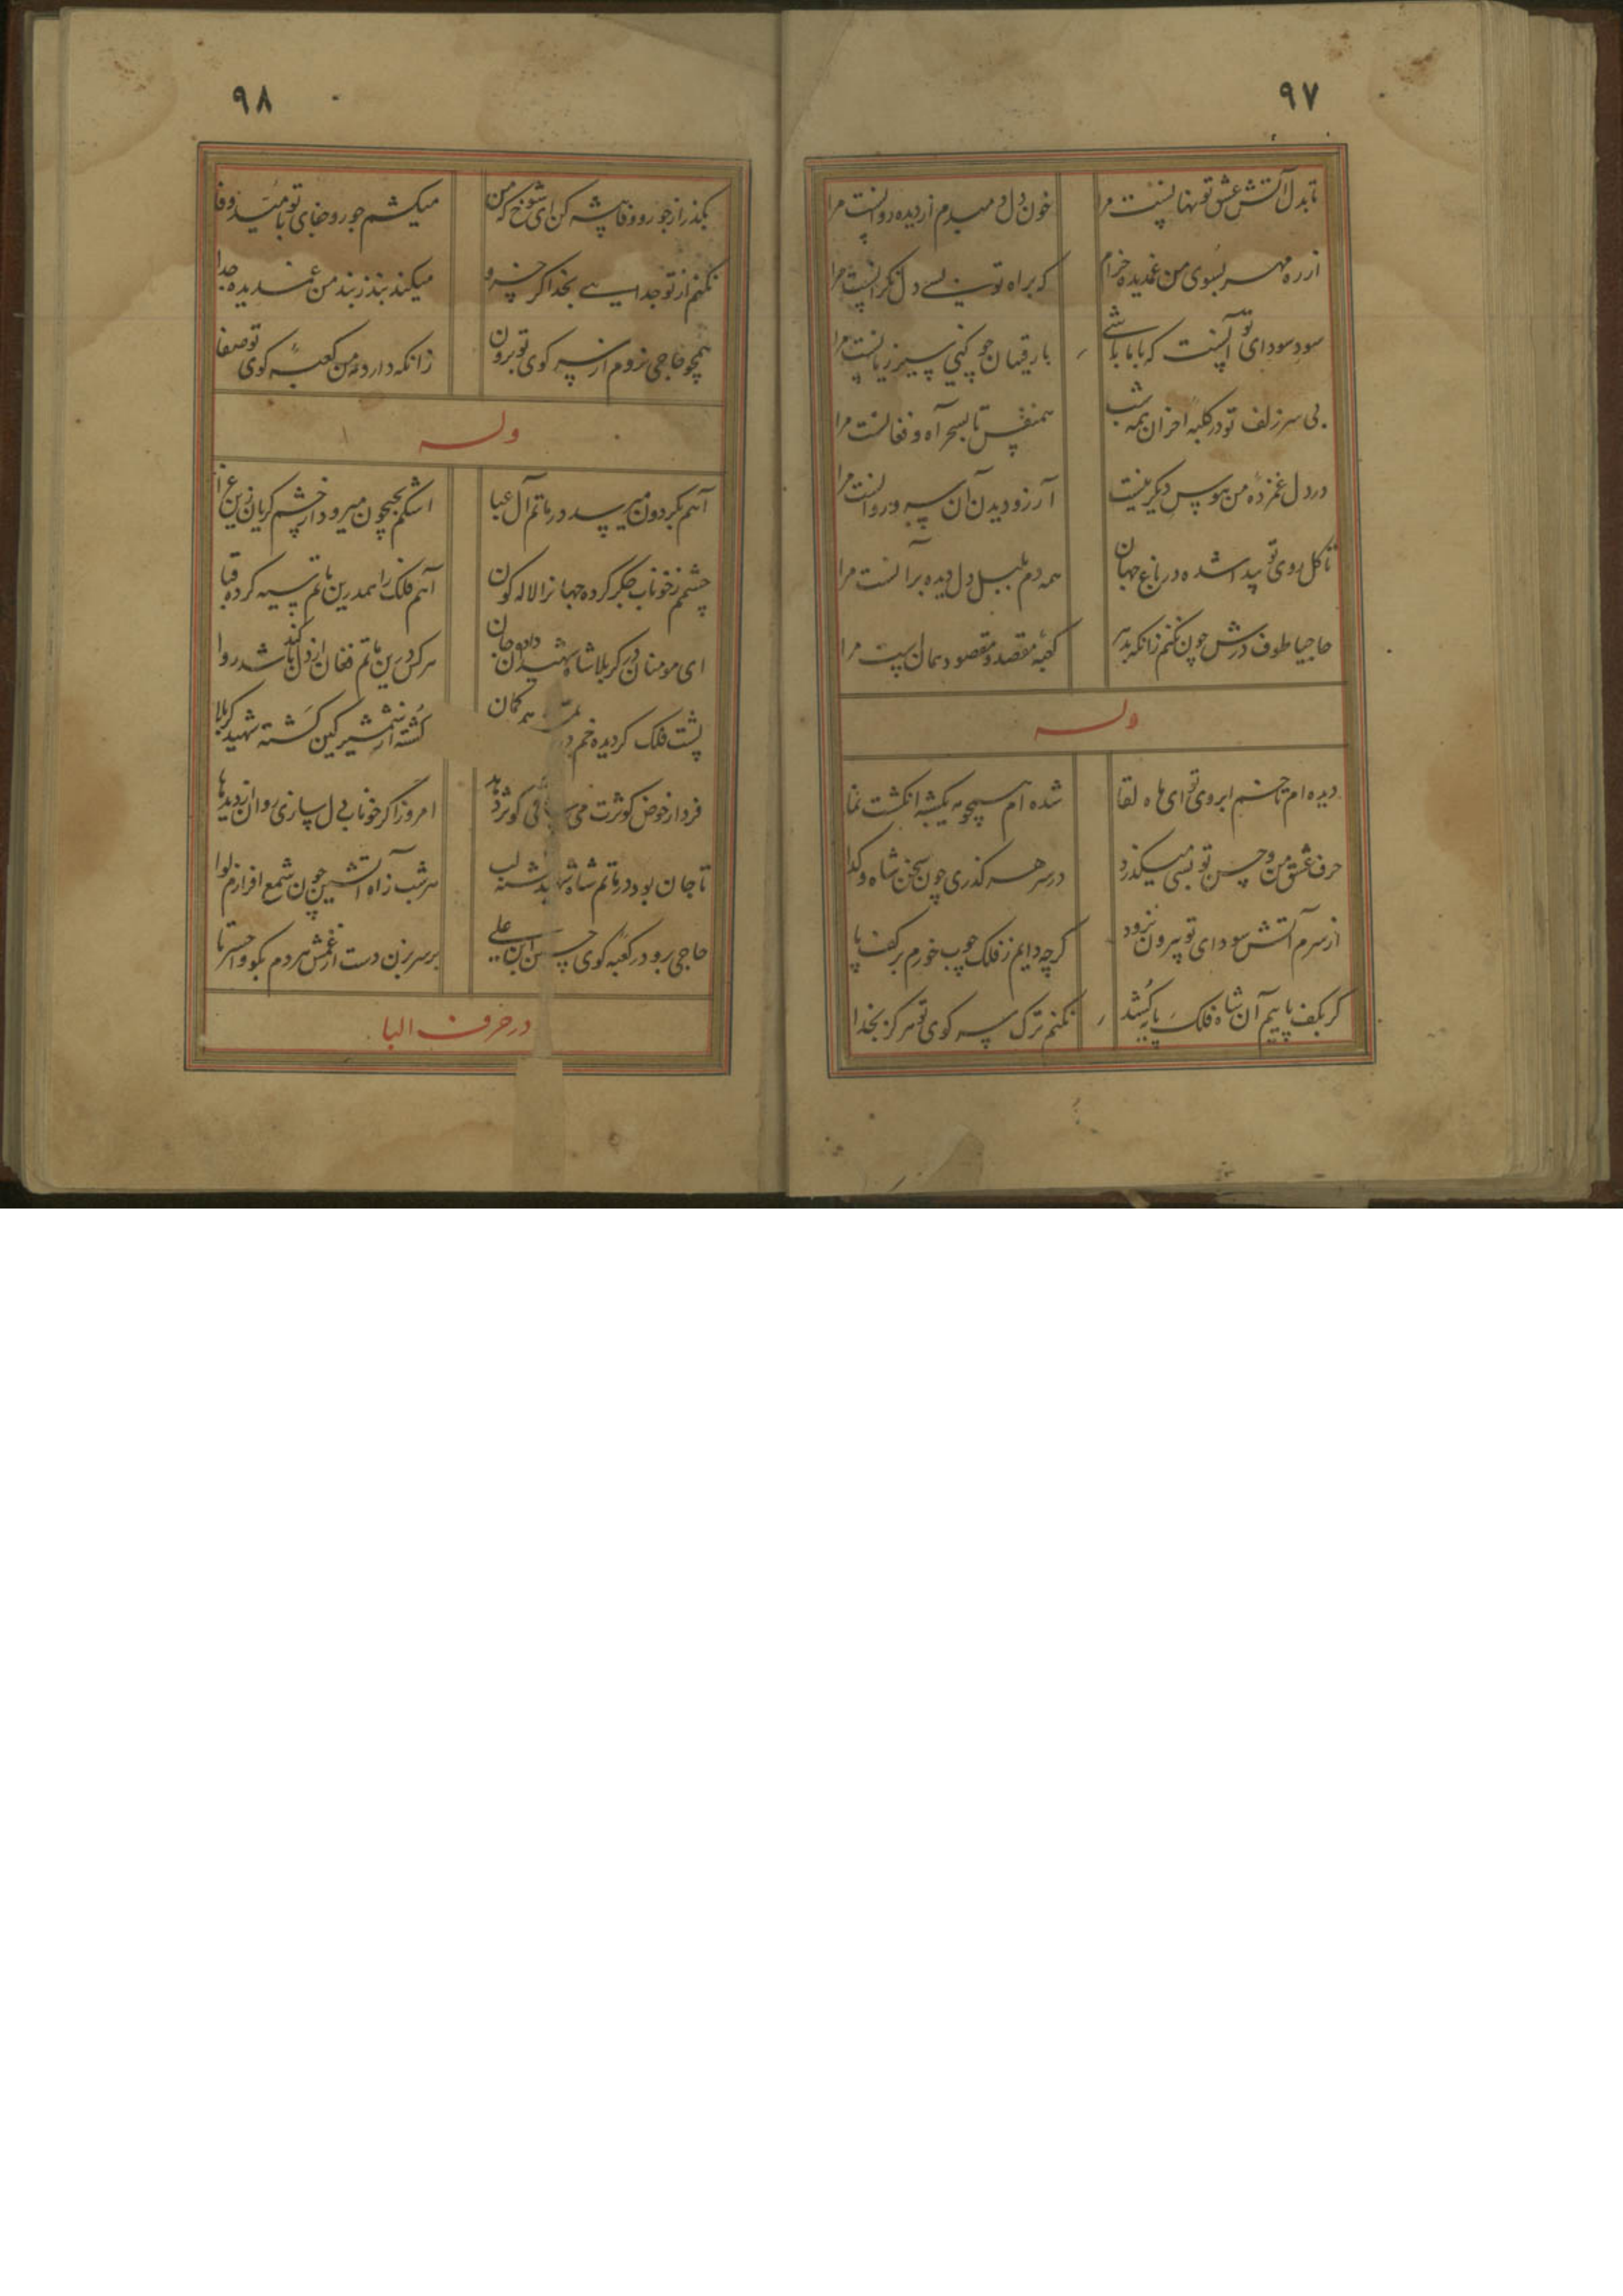 ۹۷
تا بدل آتش عشق تو نهانست مرا
خون دل دمبدم از دیده روانست مرا
از ره مهر بسوی من غمدیده خرام
که براه تو بسی دل نگرانست مرا
سود سودای تو آنست که با ما باشی
با رقیبان چو کنی سیر زیانست مرا
بی سر زلف تو در کلبه احزان همه شب
همنفس تا بسحر آه و فغانست مرا
در دل غمزده من هوس دیگر نیست
آرزو دیدن آن سرو روانست مرا
تا گل روی تو پیدا شده در باغ جهان
همه دم بلبل دل دیده برآنست مرا
حاجیا طوف درش چون نکنم زانکه بدهر
کعبه مقصد و مقصود همان است مرا
وله
دیده ام تا خم ابروی تو ای ماه لقا
شده ام همچو مه یکشبه انگشت نما
حرف عشق من و حسن تو بسی میگذرد
در سر هر گذری چون سخن شاه و گدا
از سرم آتش سودای تو بیرون نرود
گرچه دایم ز فلک چوب خورم بر کف پا
گر بکف پاییم آن شاه فلک پا کشد
نکنم ترک سر کوی تو هرگز بخدا
۹۸
بگذر از جور و وفا پیشه کن ای شوخ که من
میکشم جور و جفای تو بامید وفا
نکنم از تو جدایی بخدا گر خسرو
میکند بند ز بند من غمدیده جدا
همچو حاجی نروم از سر کوی تو برون
زانکه دارد مه من کعبه کوی تو صفا
وله
آهم بگردون میرسد در ماتم آل عبا
اشکم چو جیحون میرود از چشم گریان زین عزا
چشمم ز خوناب جگر کرده جهانرا لاله گون
آهم فلک را همدرین ماتم سیه کرده قبا
ای مومنان در کربلا شاه شهیدان داده جان
هر کس درین ماتم فغان از دل کند باشد روا
پشت فلک گردیده خم همچو کمان
کشته از شمشیر کین گشته شهید کربلا
فردا ز حوض کوثرت می ساقی کوثر دهد
امروز اگر خوناب دل سازی روان از دیدها
تا جان بود در ماتم شاه شهید تشنه لب
هر شب ز آه آتشین چون شمع افرازم لوا
حاجی برو در کعبه کوی حسین ابن علی
بر سر بزن دست از غمش هر دم بگو واحسرتا
در حرف البا